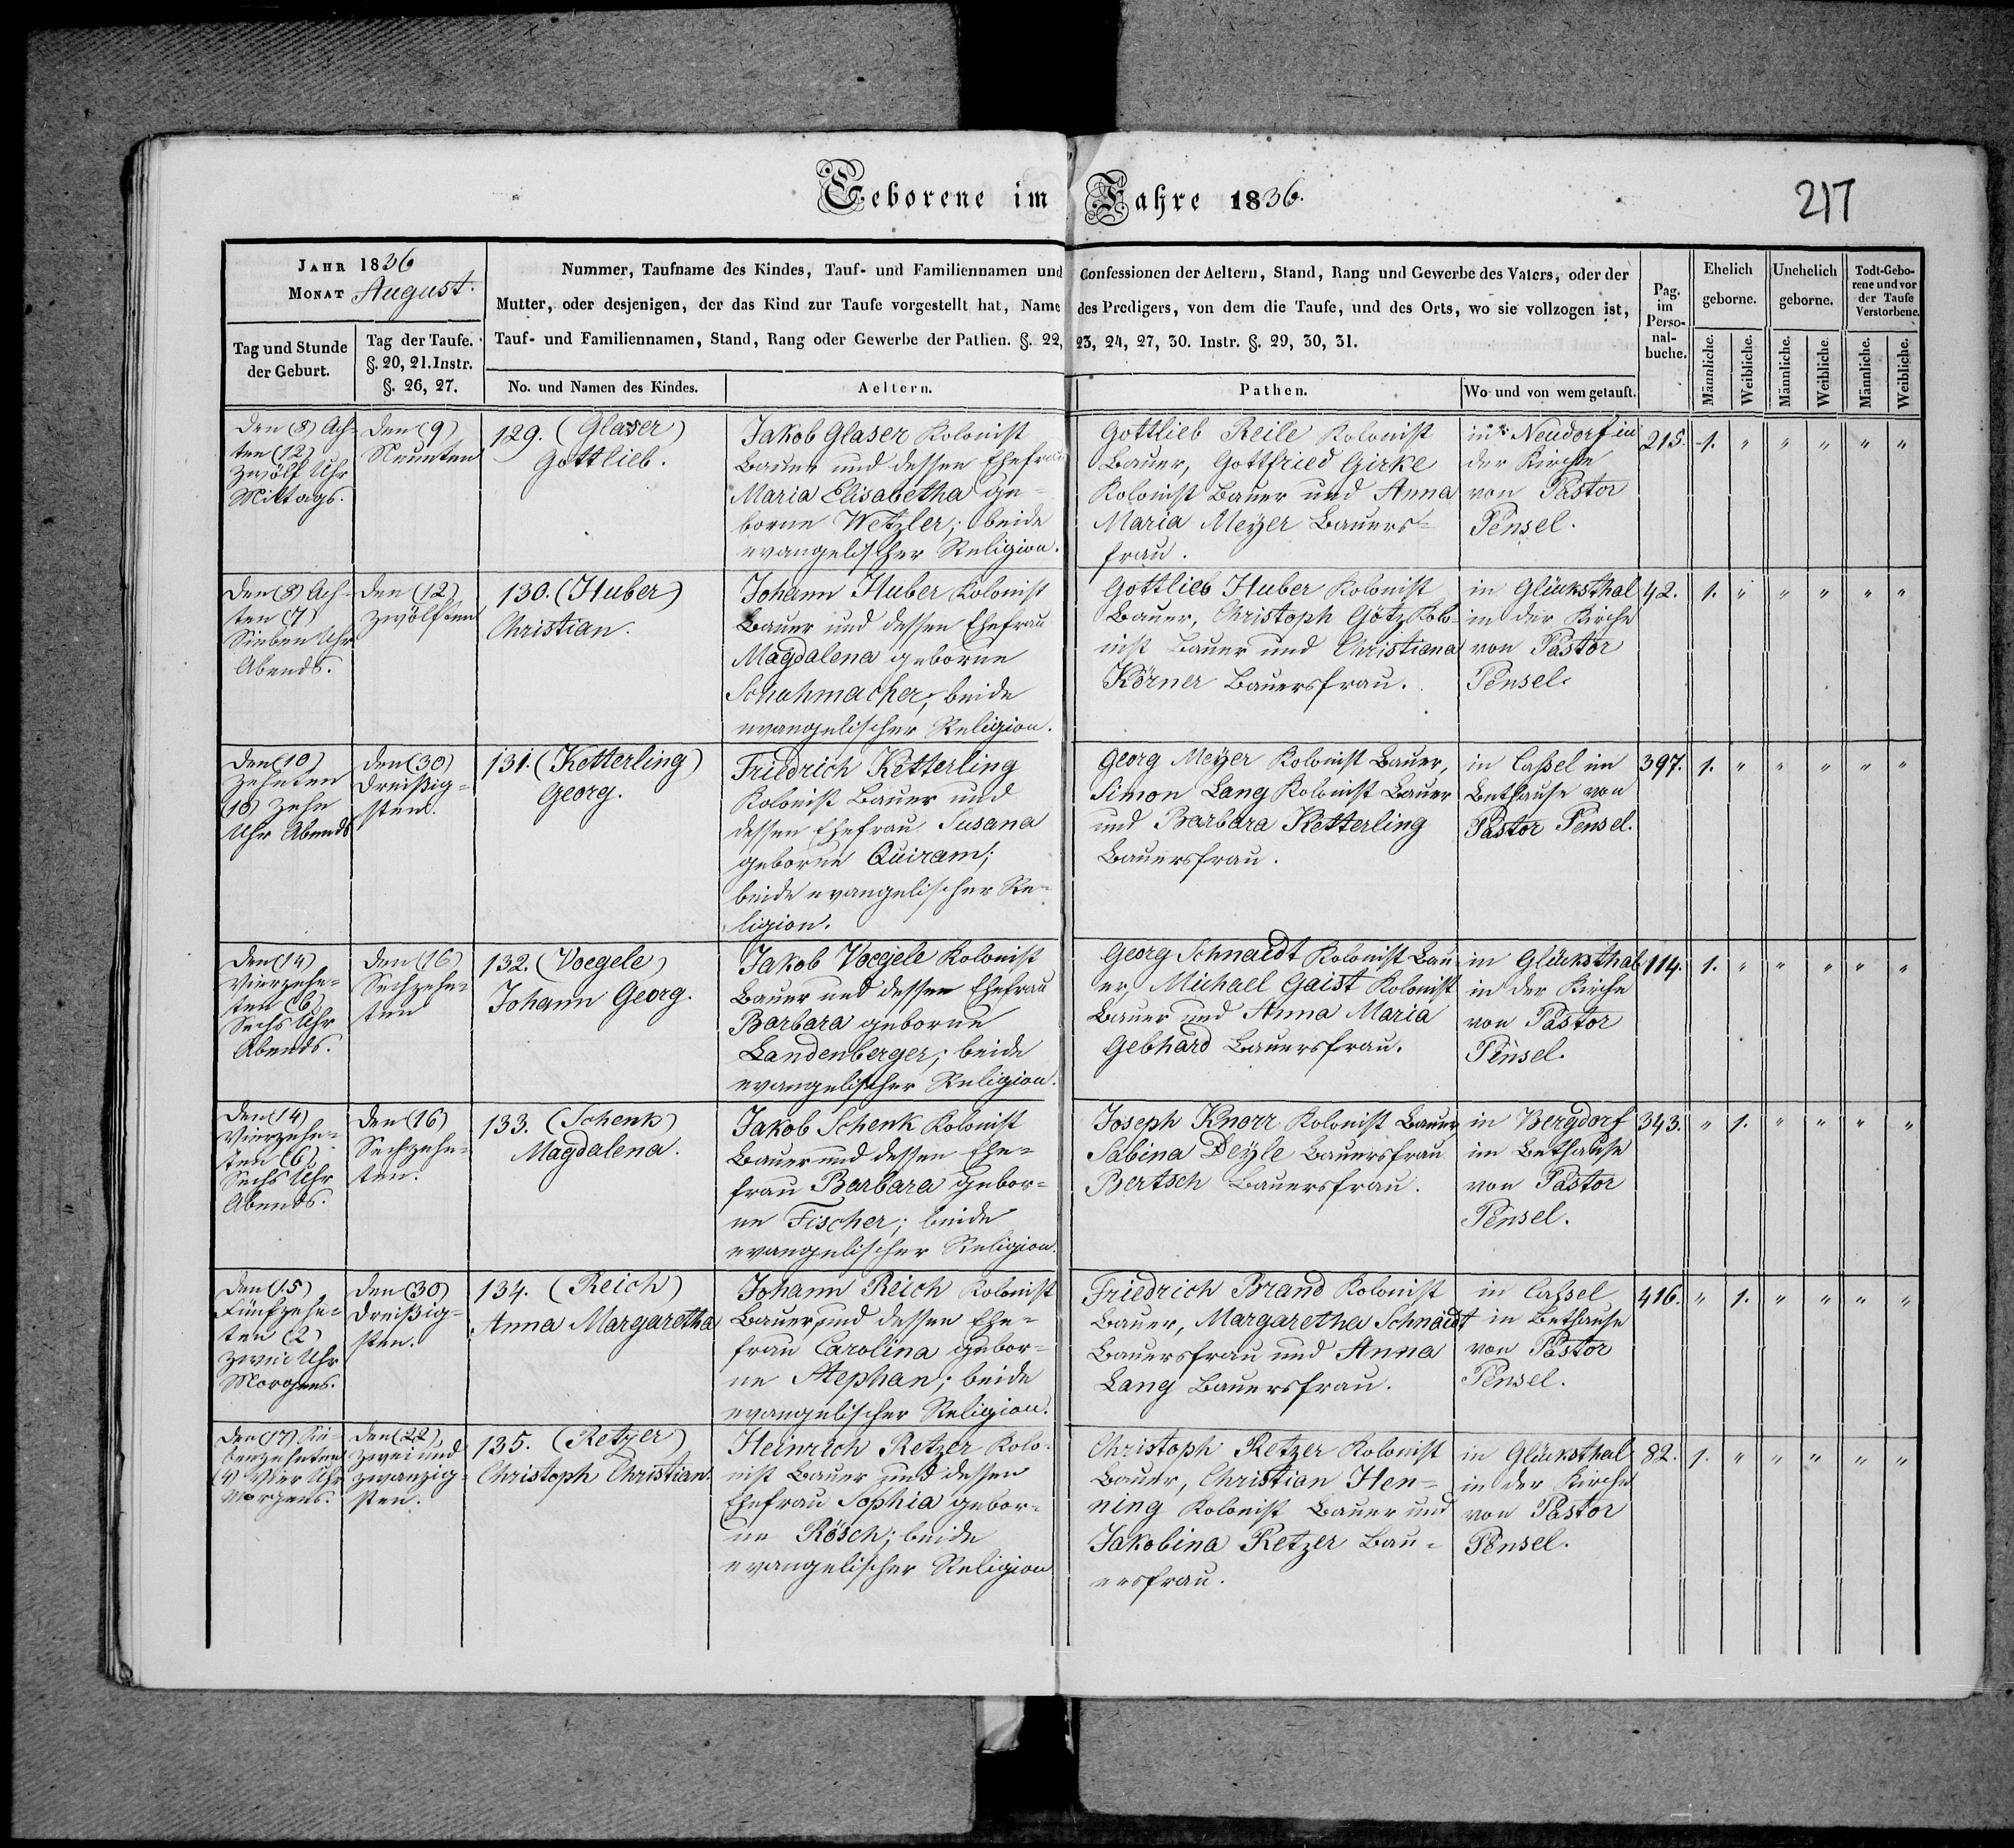 Geborene im Jahre 1836.
217
JAHR 1836
MONAT August.
Nummer, Taufname des Kindes, Tauf- und Familiennamen und Confessionen der Aeltern, Stand, Rang und Gewerbe des Vaters, oder der
Mutter, oder desjenigen, der das Kind zur Taufe vorgestellt hat, Name des Predigers, von dem die Taufe, und des Orts, wo sie vollzogen ist,
Tauf- und Familiennamen, Stand, Rang oder Gewerbe der Pathen. §. 22, 23, 24, 27, 30. Instr. §. 29, 30, 31.
Tag und Stunde
der Geburt.
Tag der Taufe.
§. 20, 21. Instr.
§. 26, 27.
No. und Namen des Kindes.
Aeltern.
Pathen.
Wo und von wem getauft.
Pag.
im
Perso-
nal-
buche.
Ehelich
geborne.
Unehelich
geborne.
Todt-Gebo-
rene und vor
der Taufe
Verstorbene.
Männliche.
Weibliche.
Männliche.
Weibliche.
Männliche.
Weibliche.
Den (8) Ach-
ten (12)
Zwölf Uhr
Mittags.
Den (9)
Neunten
129. (Glaser)
Gottlieb.
Jakob Glaser Kolonist
Bauer und dessen Ehefrau
Maria Elisabetha ge-
borne Wetzler; beide
evangelischer Religion.
Gottlieb Reile Kolonist
Bauer, Gottfried Girke
Kolonist Bauer und Anna
Maria Meÿer Bauers-
frau.
in Neudorf in
der Kirche
von Pastor
Pensel.
215. 1. " " " " "
Den (8) Ach-
ten (7)
Sieben Uhr
Abends.
Den (12)
Zwölften
130. (Huber)
Christian.
Johann Huber Kolonist
Bauer und dessen Ehefrau
Magdalena geborne
Schuhmacher; beide
evangelischer Religion.
Gottlieb Huber Kolonist
Bauer, Christoph Götz Kolo-
nist Bauer und Christiana
Körner Bauersfrau.
in Glücksthal
in der Kirche
von Pastor
Pensel.
42. 1. " " " " "
Den (10)
Zehnten
(10) Zehn
Uhr Abends
Den (30)
Dreißig-
sten.
131. (Ketterling)
Georg.
Friedrich Ketterling
Kolonist Bauer und
dessen Ehefrau Susana
geborne Quiram;
beide evangelischer Re-
ligion.
Georg Meÿer Kolonist Bauer,
Simon Lang Kolonist Bauer
und Barbara Ketterling
Bauersfrau.
in Cassel im
Bethause von
Pastor Pensel.
397. 1. " " " " "
Den (14)
Vierzehn-
ten (6)
Sechs Uhr
Abends.
Den (16)
Sechzehn-
ten
132. (Voegele)
Johann Georg.
Jakob Voegele Kolonist
Bauer und dessen Ehefrau
Barbara geborne
Landenberger; beide
evangelischer Religion.
Georg Schnaidt Kolonist Bau-
er, Michael Gaist Kolonist
Bauer und Anna Maria
Gebhard Bauersfrau.
in Glücksthal
in der Kirche
von Pastor
Pensel.
114. 1. " " " " "
Den (14)
Vierzehn-
ten (6)
Sechs Uhr
Abends.
Den (16)
Sechzehn-
ten.
133. (Schenk)
Magdalena.
Jakob Schenk Kolonist
Bauer und dessen Ehe-
frau Barbara gebor-
ne Fischer; beide
evangelischer Religion.
Joseph Knorr Kolonist Bauer
Sabina Deÿle Bauersfrau
Bertsch Bauersfrau.
in Bergdorf
im Bethause
von Pastor
Pensel.
343. " 1. " " " "
Den (15)
Fünfzehn-
ten (2)
Zwei Uhr
Morgens.
Den (30)
Dreißig-
sten.
134. (Reich)
Anna Margaretha
Johann Reich Kolonist
Bauer, und dessen Ehe-
frau Carolina gebor-
ne Stephan; beide
evangelischer Religion.
Friedrich Brand Kolonist
Bauer, Margaretha Schnaidt
Bauersfrau und Anna
Lang Bauersfrau.
in Cassel
in Bethause
von Pastor
Pensel.
416. " 1. " " " "
Den (17) Sie-
benzehnten
(4) Vier Uhr
Morgens.
Den (22)
Zwei und
zwanzig-
sten.
135. (Retzer)
Christoph Christian.
Heinrich Retzer Kolo-
nist Bauer und dessen
Ehefrau Sophia gebor-
ne Rösch; beide
evangelischer Religion
Christoph Retzer Kolonist
Bauer, Christian Hen-
ning Kolonist Bauer und
Jakobina Retzer Bau-
ersfrau.
in Glücksthal
in der Kirche
von Pastor
Pensel.
82. 1. " " " " "